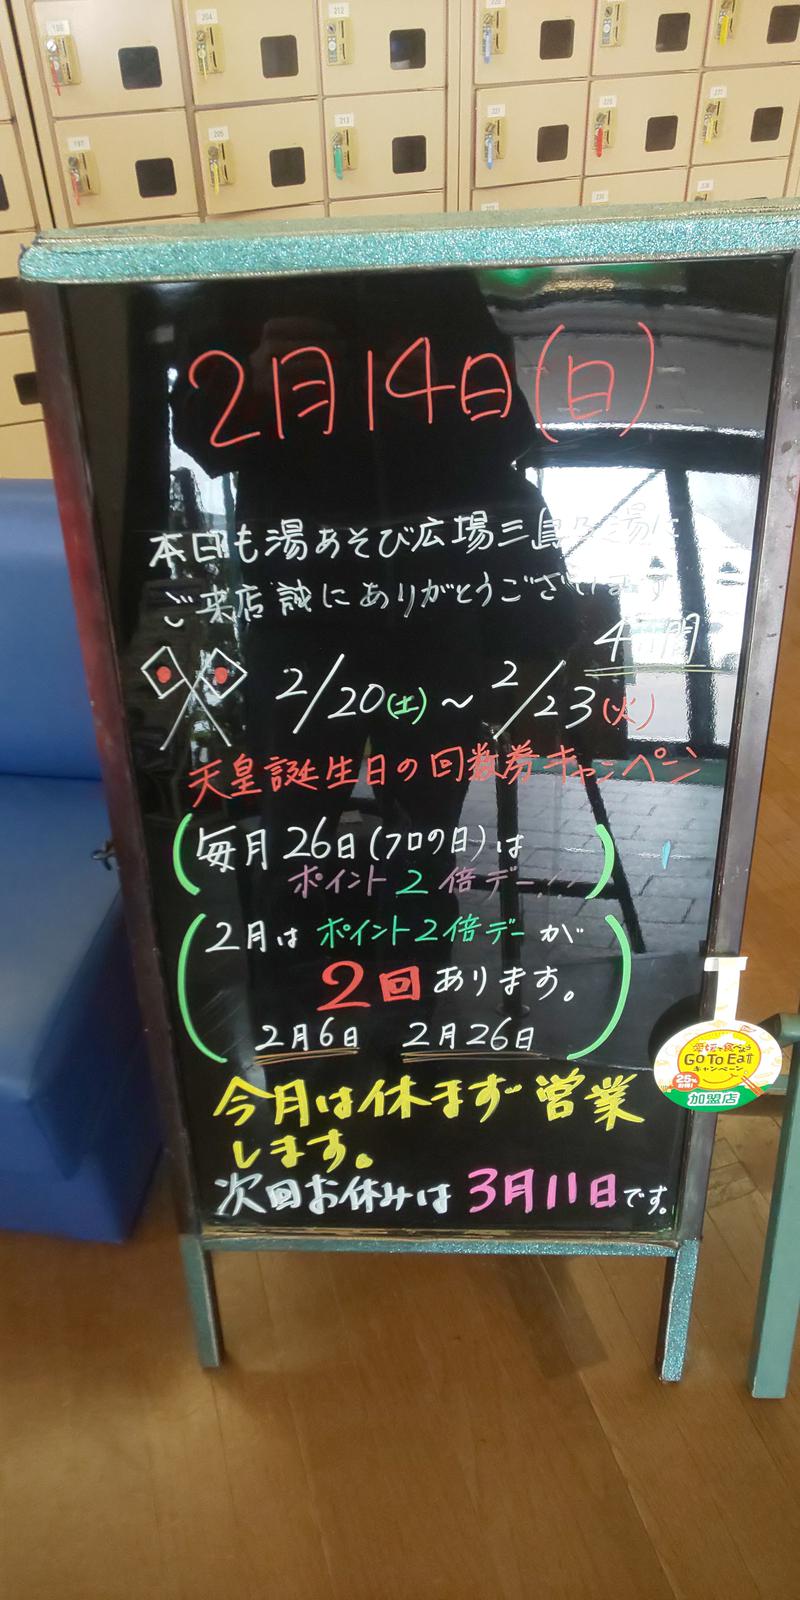 204
212
197
205
213
221
2月14日(日)
本日も湯あそび広場三島乃湯に
ご来店誠にありがとうございます
4日間
2/20(土)~2/23(火)
天皇誕生日の回数券キャンペーン
毎月26日(フロの日)は
ポイント2倍デー!!
2月はポイント2倍デーが
2回あります。
2月6日 2月26日
今月は休まず営業
します。
次回お休みは3月11日です。
Go To Eat
キャンペーン
25%
加盟店